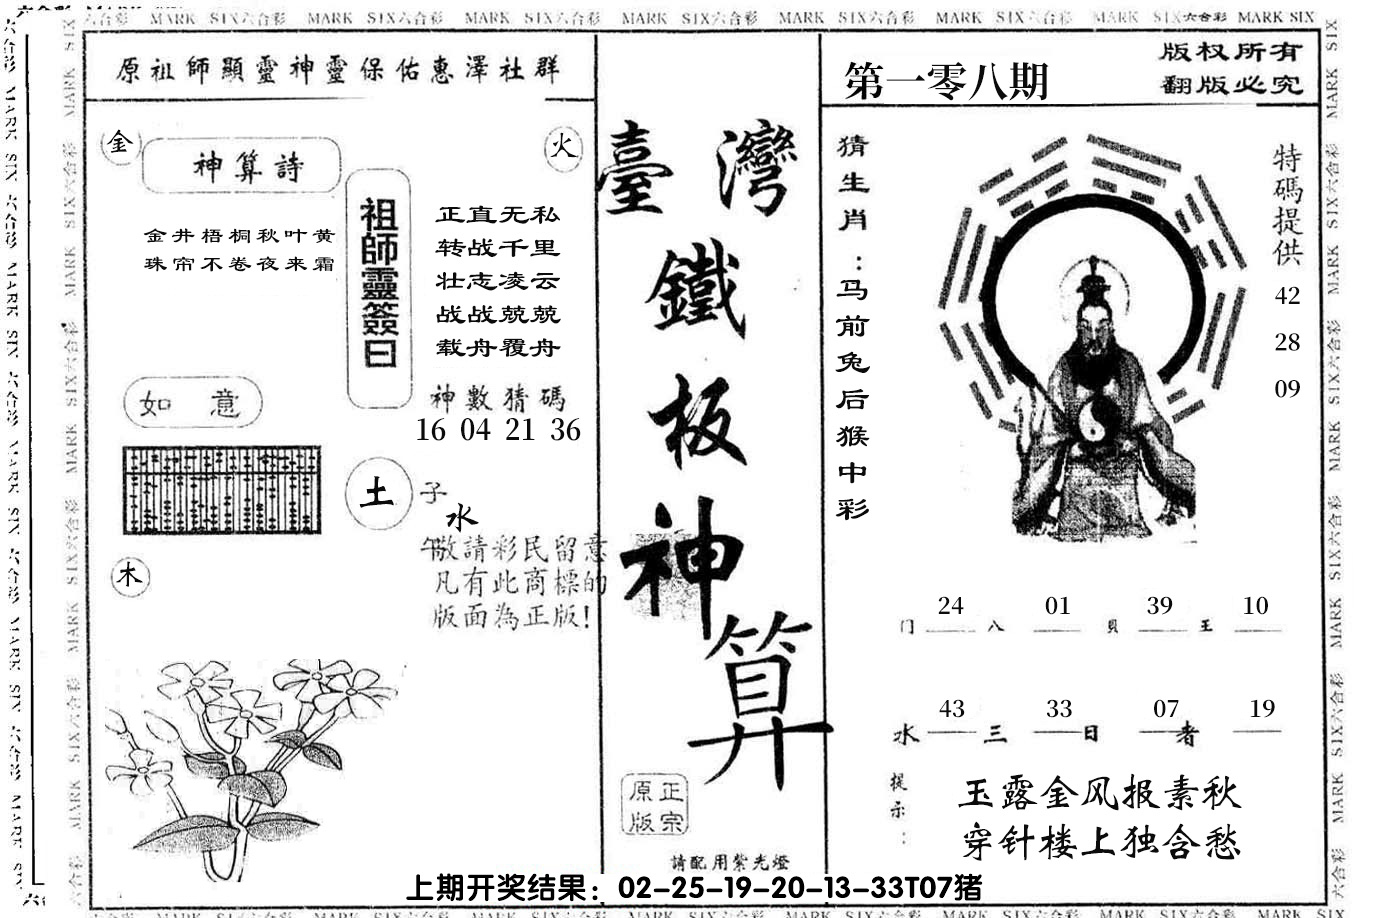 MARK SIX六合彩 MARK SIX六合彩 MARK SIX六合彩 MARK SIX六合彩 MARK SIX六合彩 MARK SIX六合彩 MARK SIX六合彩 MARK SIX
原祖師顯靈神靈保佑惠澤社群
金
火
神算詩
金井梧桐秋叶黄
珠帘不卷夜来霜
祖師靈簽曰
正直无私
转战千里
壮志凌云
战战兢兢
载舟覆舟
神數猜碼
16 04 21 36
如意
土
子
水
午
木
敬請彩民留意
凡有此商標的
版面為正版!
臺灣
鐵
板
神
算
正宗
原版
請配用紫光燈
第一零八期
版权所有
翻版必究
猜生肖:马前兔后猴中彩
特碼提供
42
28
09
24 01 39 10
门 八 貝 王
43 33 07 19
水 三 日 者
提示:
玉露金风报素秋
穿针楼上独含愁
上期开奖结果：02-25-19-20-13-33T07猪